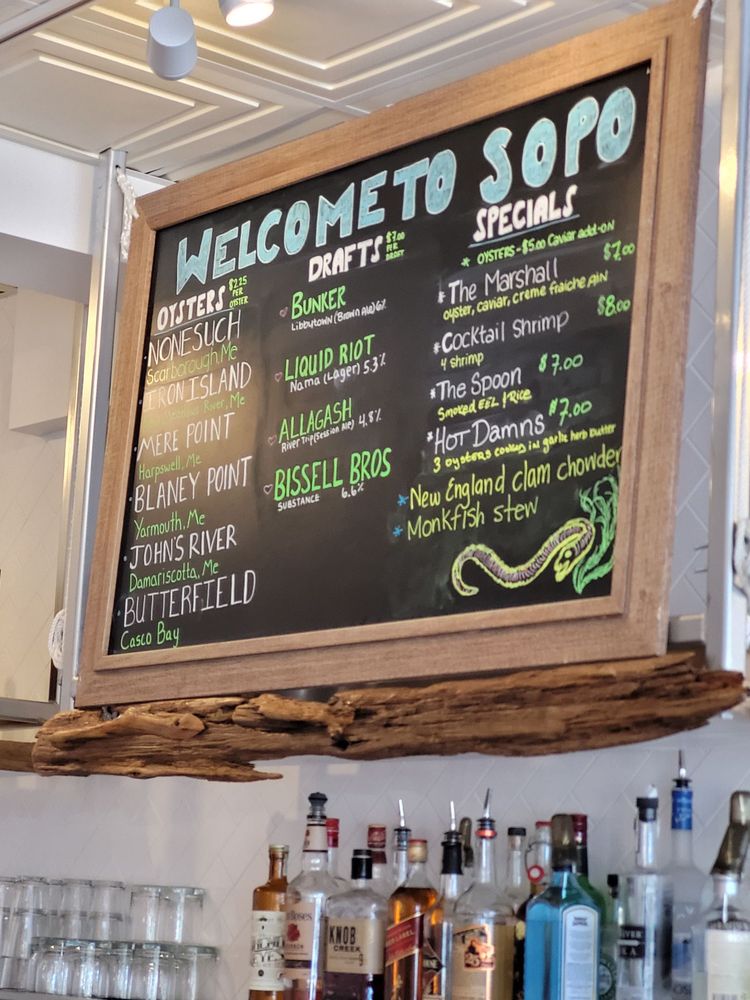 WELCOME TO SOPO
OYSTERS $2.25 PER OYSTER
·NONESUCH
Scarborough, Me
·IRON ISLAND
River, Me
·MERE POINT
Harpswell, Me
·BLANEY POINT
Yarmouth, Me
·JOHN'S RIVER
Damariscotta, Me
·BUTTERFIELD
Casco Bay
DRAFTS $7.00 PER DRAFT
♡ BUNKER
Libbytown (Brown Ale) 6%
♡ LIQUID RIOT
Nama (Lager) 5.3%
♡ ALLAGASH
River Trip (Session Ale) 4.8%
♡ BISSELL BROS
SUBSTANCE 6.6%
SPECIALS
* OYSTERS - $5.00 Caviar add-on
*The Marshall $7.00
oyster, caviar, creme fraiche, gin
*Cocktail Shrimp $8.00
4 shrimp
*The Spoon $7.00
Smoked EEL / Rice
*Hot Damns $7.00
3 oysters cooked in garlic herb butter
*New England clam chowder
*Monkfish stew
Roses
KNOB CREEK
9
RED LABEL